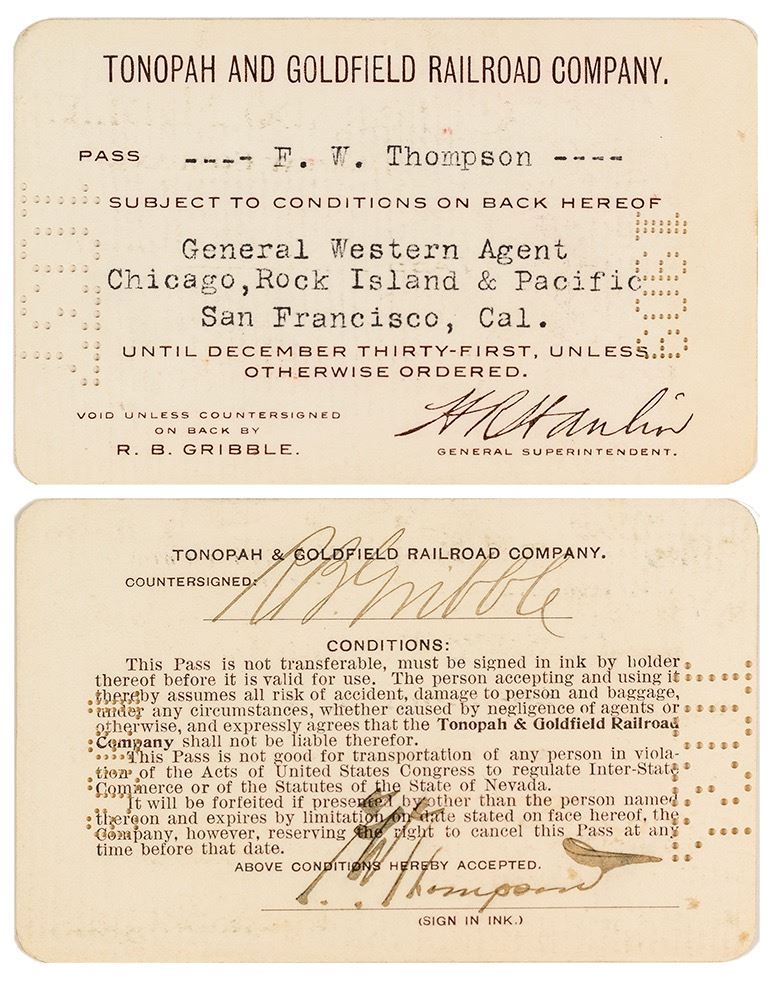 TONOPAH AND GOLDFIELD RAILROAD COMPANY.
PASS ---- F. W. Thompson ----
SUBJECT TO CONDITIONS ON BACK HEREOF
General Western Agent
Chicago,Rock Island & Pacific
San Francisco, Cal.
UNTIL DECEMBER THIRTY-FIRST, UNLESS
OTHERWISE ORDERED.
VOID UNLESS COUNTERSIGNED
ON BACK BY
R. B. GRIBBLE.
H R Hanlin
GENERAL SUPERINTENDENT.
TONOPAH & GOLDFIELD RAILROAD COMPANY.
COUNTERSIGNED: R B. Gribble
CONDITIONS:
This Pass is not transferable, must be signed in ink by holder
thereof before it is valid for use. The person accepting and using it
thereby assumes all risk of accident, damage to person and baggage,
under any circumstances, whether caused by negligence of agents or
otherwise, and expressly agrees that the Tonopah & Goldfield Railroad
Company shall not be liable therefor.
This Pass is not good for transportation of any person in viola-
tion of the Acts of United States Congress to regulate Inter-State
Commerce or of the Statutes of the State of Nevada.
It will be forfeited if presented by other than the person named
thereon and expires by limitation on date stated on face hereof, the
Company, however, reserving the right to cancel this Pass at any
time before that date.
ABOVE CONDITIONS HEREBY ACCEPTED.
F. W. Thompson
(SIGN IN INK.)